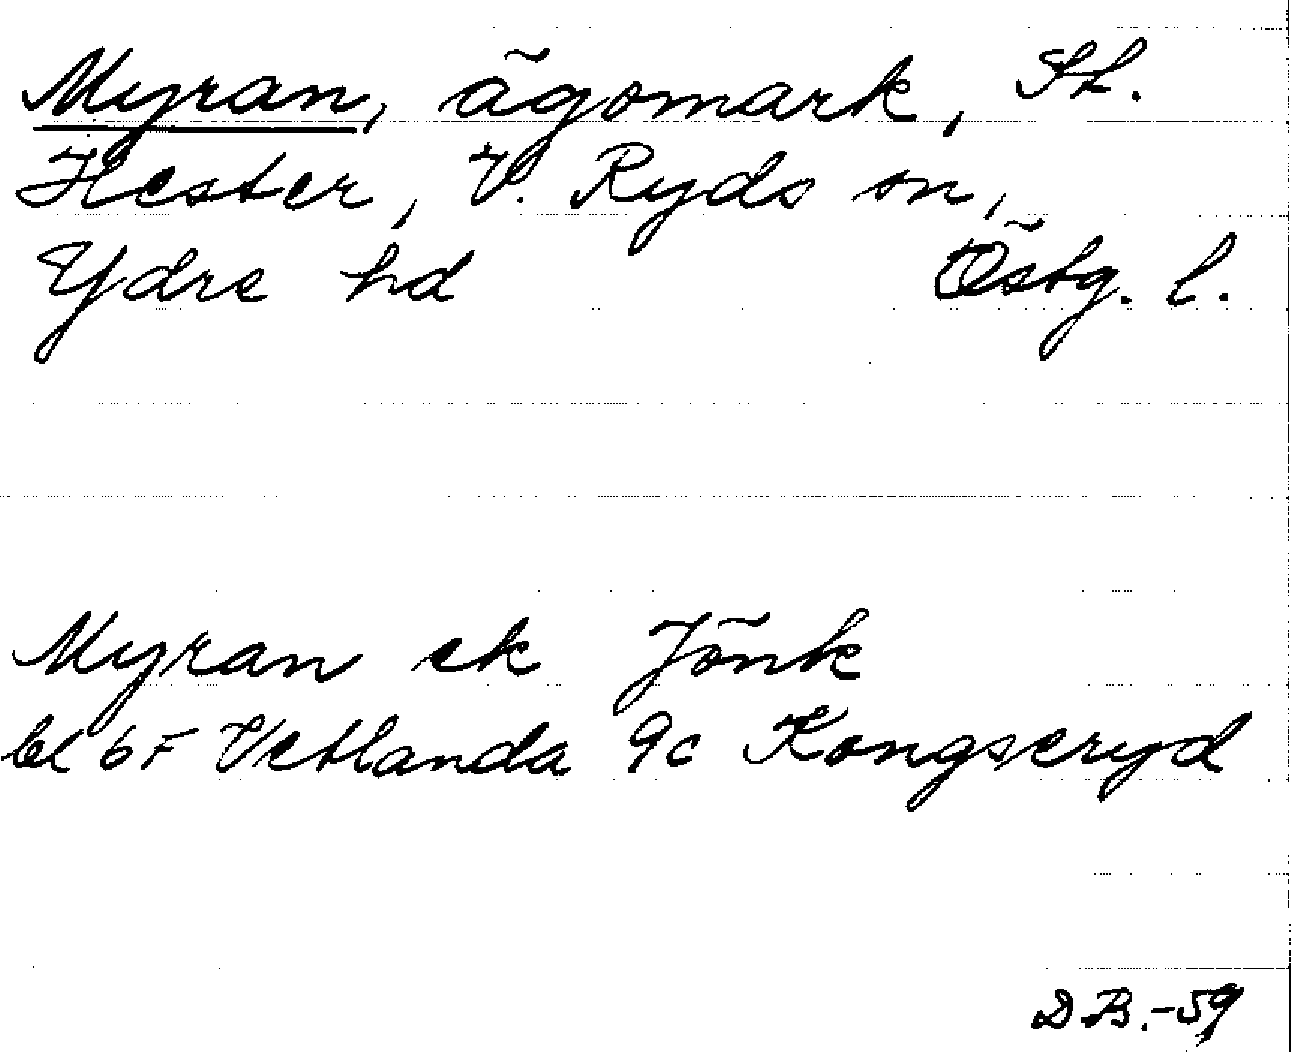 Myran, ägomark, St.
Hester, V. Ryds sn,
Ydre hd Östg. l.
Myran ek Jönk
bl 6F Vetlanda 9c Kongseryd
D.B.-59